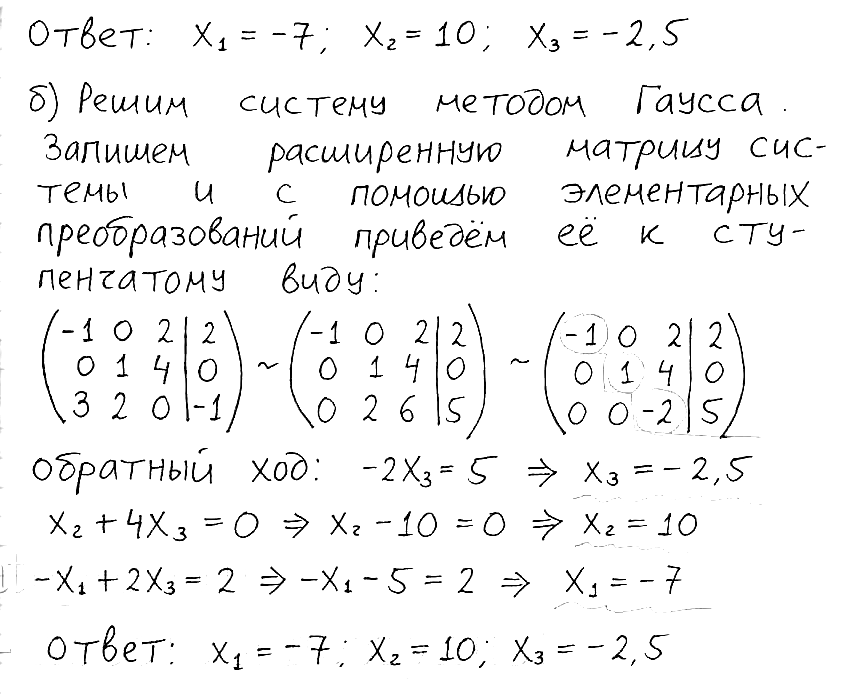 Ответ: x₁ = -7; x₂ = 10; x₃ = -2,5
б) Решим систему методом Гаусса.
Запишем расширенную матрицу сис-
темы и с помощью элементарных
преобразований приведём её к сту-
пенчатому виду:
(-1 0 2 | 2) (-1 0 2 | 2) (-1 0 2 | 2)
(0 1 4 | 0) ~ (0 1 4 | 0) ~ (0 1 4 | 0)
(3 2 0 | -1) (0 2 6 | 5) (0 0 -2 | 5)
обратный ход: -2x₃ = 5 ⇒ x₃ = -2,5
x₂ + 4x₃ = 0 ⇒ x₂ - 10 = 0 ⇒ x₂ = 10
-x₁ + 2x₃ = 2 ⇒ -x₁ - 5 = 2 ⇒ x₁ = -7
Ответ: x₁ = -7; x₂ = 10; x₃ = -2,5